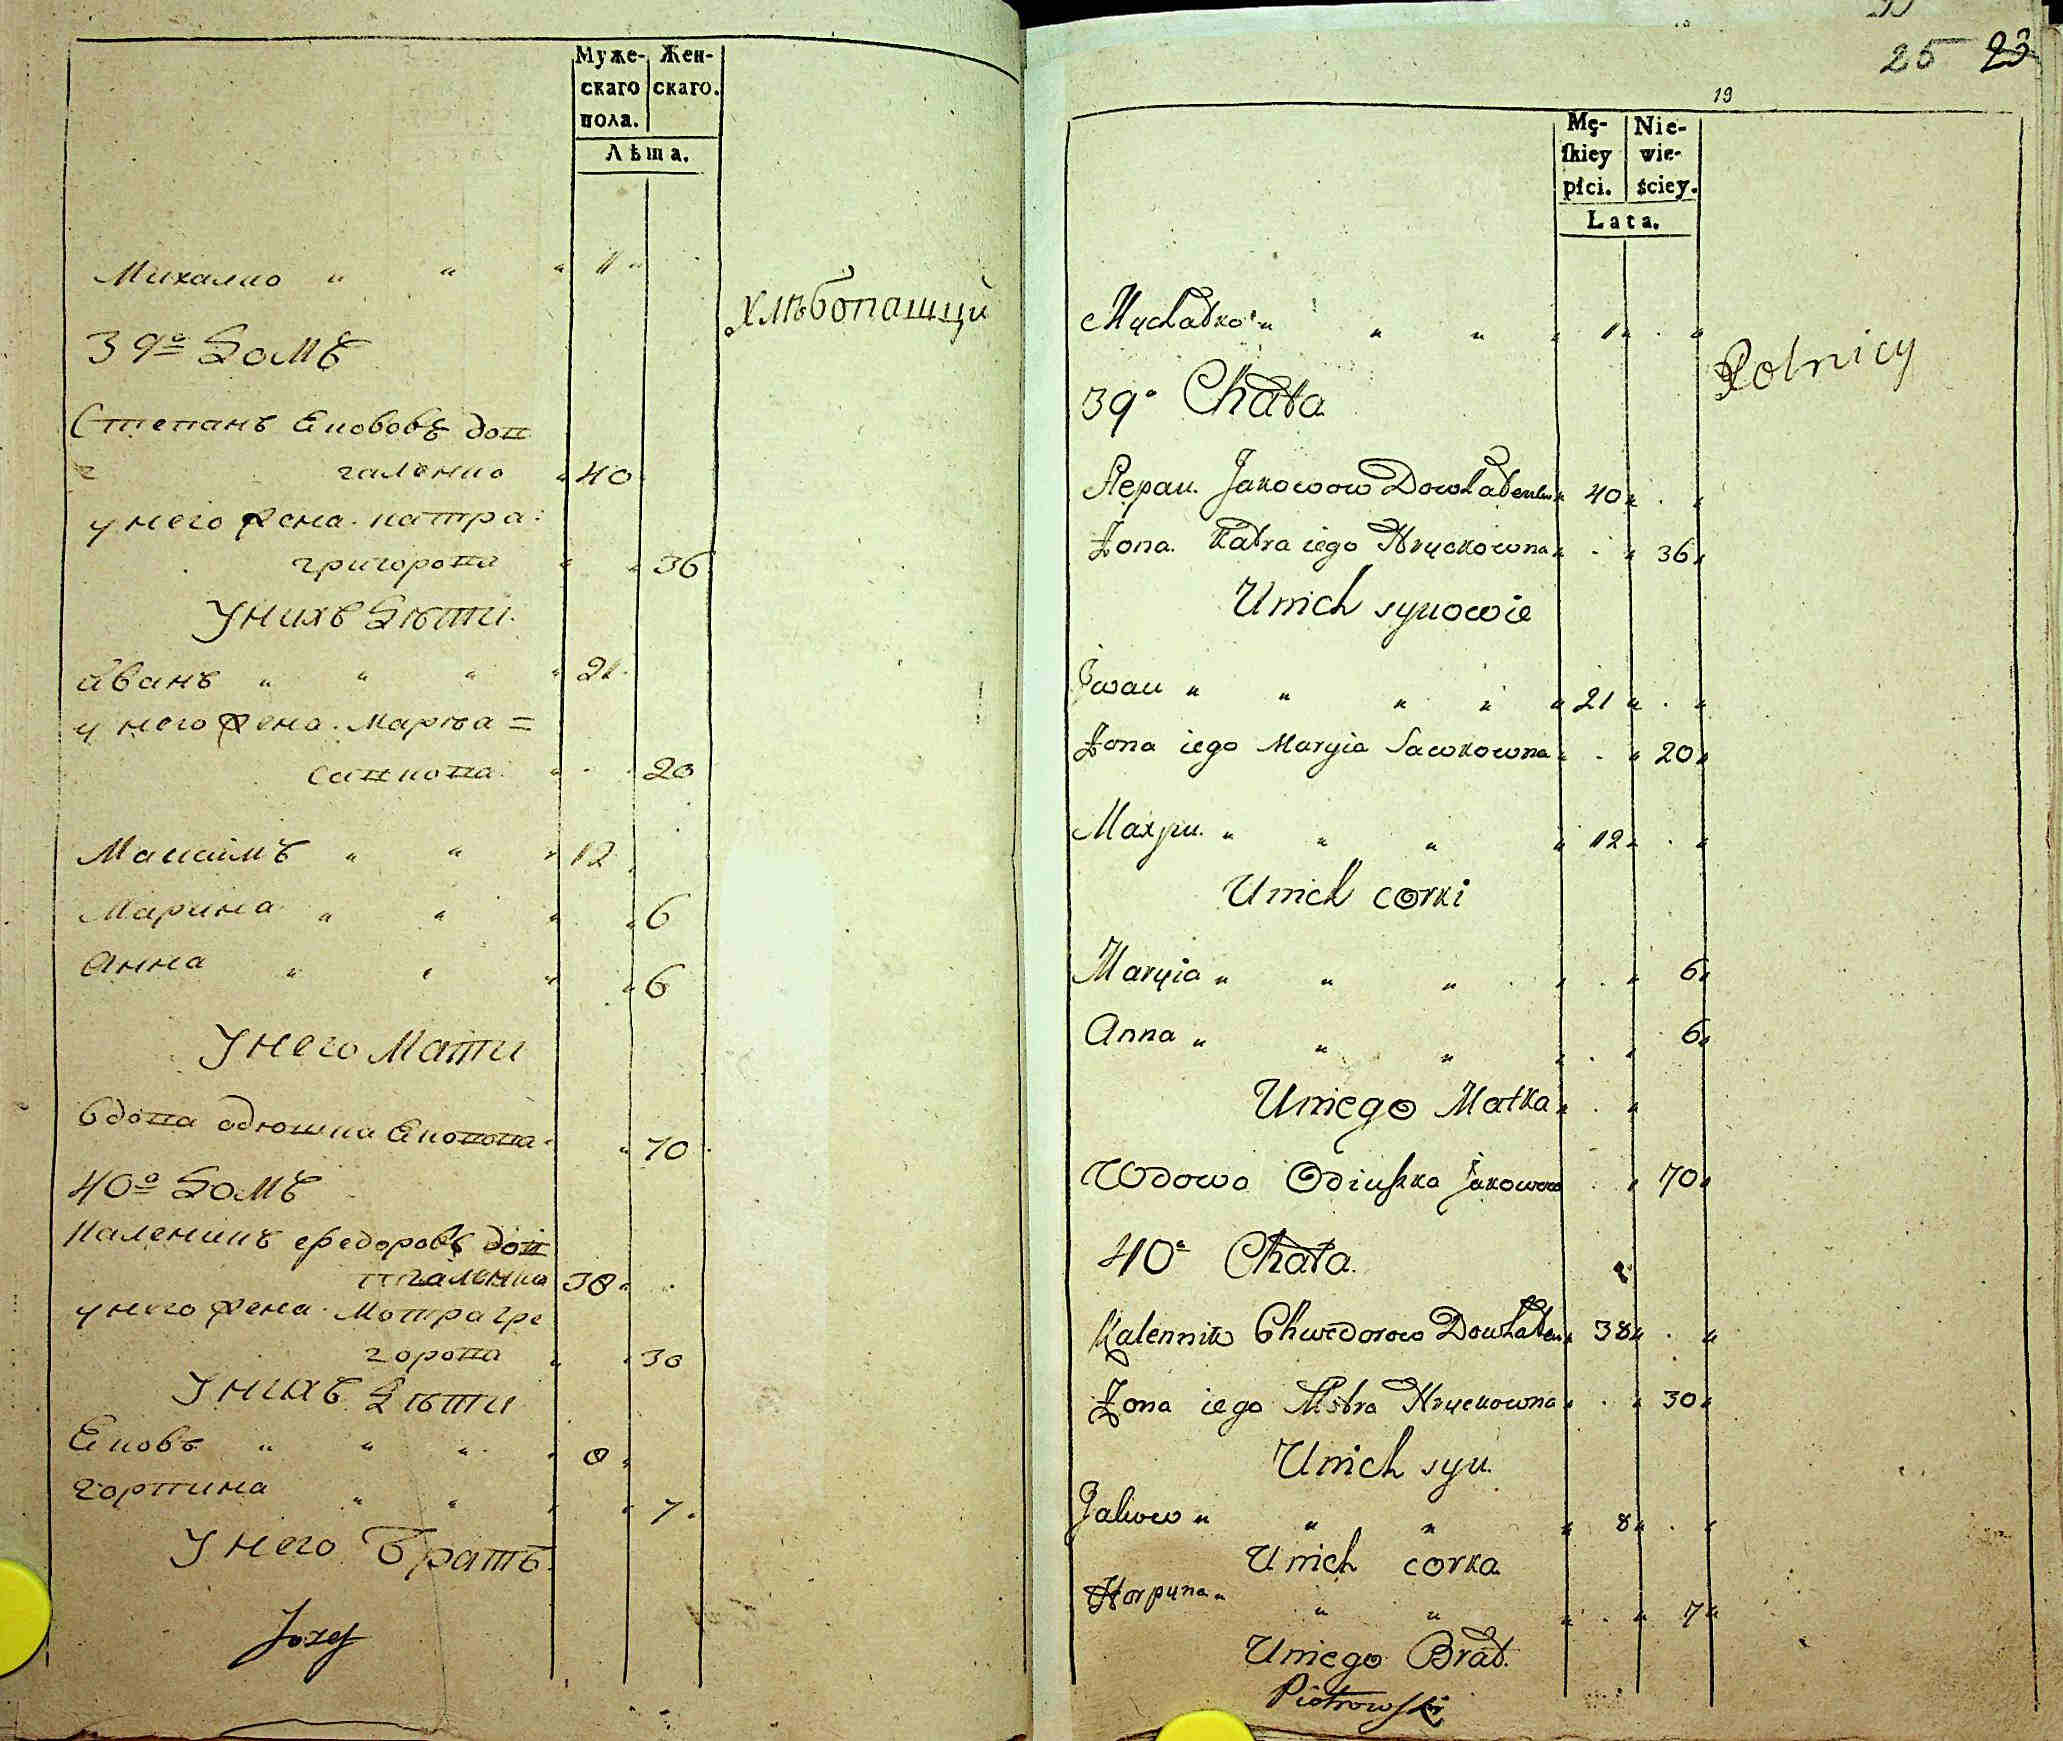 Муже- Жен-
скаго скаго.
пола.
Лѣта.
Михалко " " " 11 "
Хлѣбопашци
39º Домъ
Степанъ Якововъ дов
галенко " 40
у него жена. катра.
григорова " " 36
У нихъ Дѣти.
иванъ " " " " 21.
у него жена. Марѣа =
савкова. " . . 20
Максимъ " " " 12
Марина " " " " 6
Анна " " " " 6
У него Мати
вдова одюшка Яковова. " 70.
40º Домъ
Каленикъ Федоровъ дов
вгаленко 38 " .
у него жена. Мотра гре
горова " . 30
У нихъ Дѣти
Яковъ " " " " 8 "
горпина " " " " 7.
У него Братъ.
Jozef
25 23
19
Mę- Nie-
skiey wie-
płci. ściey.
Lata.
Mychałko " " " " 11 " . "
Rolnicy
39º Chata
Stepan. Jakowow Dowhalenko " 40 " . "
Żona. Katra iego Hryckowna " . " 36 "
U nich synowie
Jwan " " " " " 21 " . "
Żona iego Maryia Sawkowna " . " 20 "
Maxym. " " " " 12 " . "
U nich corki
Maryia " " " . " . " 6 "
Anna " " " " . " 6 "
U niego Matka " . "
Wdowa Odiuszka Jakowowa . " 70 "
40º Chata.
Kalennik Chwedorow Dowhalen " 38 " . "
Żona iego Motra Hryckowna " . " 30 "
U nich syn.
Jakow " " " " 8 " . "
U nich corka
Horpyna " " " " . " 7 "
U niego Brat.
Piotrowski